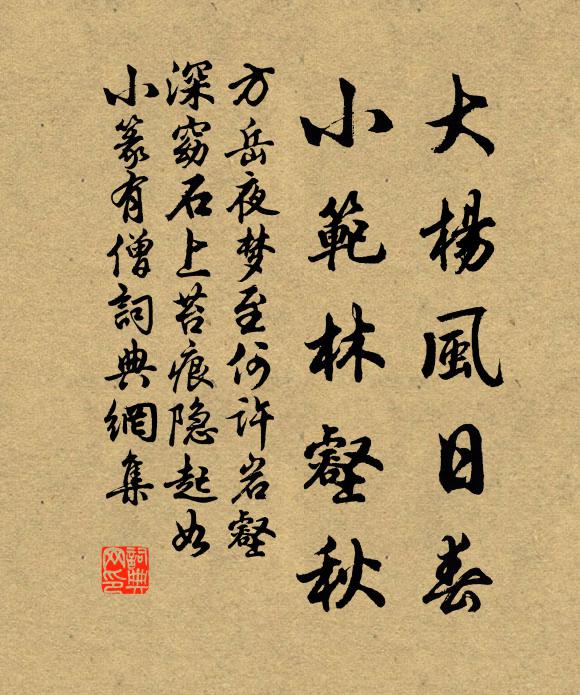 大楊風日春
小範林壑秋
方岳夜梦至何许岩壑
深窈石上苔痕隐起如
小篆有僧詞典網集
詞典网印